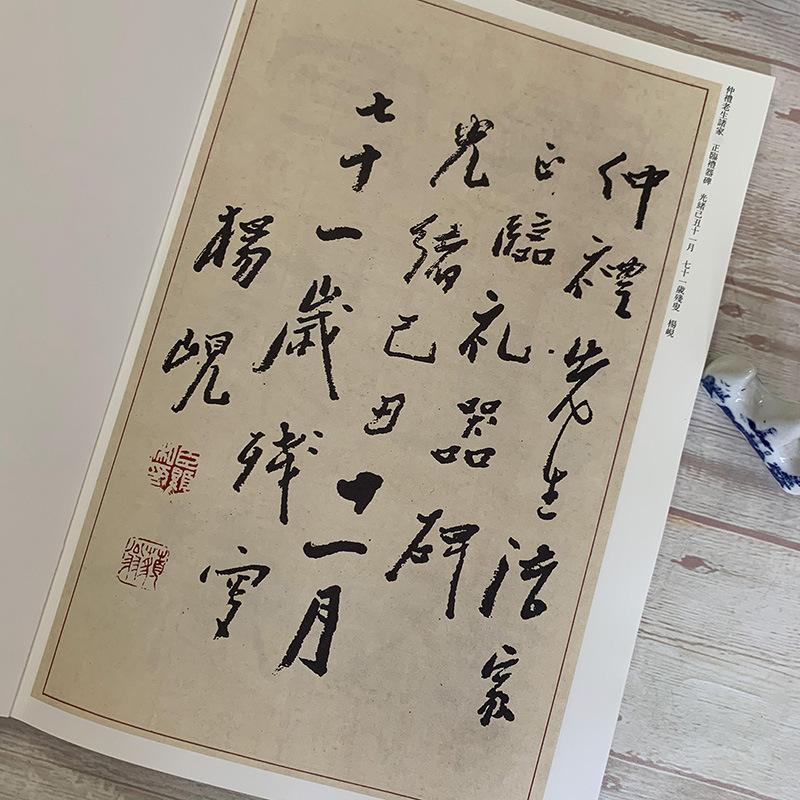 仲禮老生諸家　正臨禮器碑　光緒己丑十一月　七十一歲殘叟　楊峴
仲禮先生法家
正臨礼器碑
光緒己丑十一月
七十一歲殘叟
楊峴
藐翁